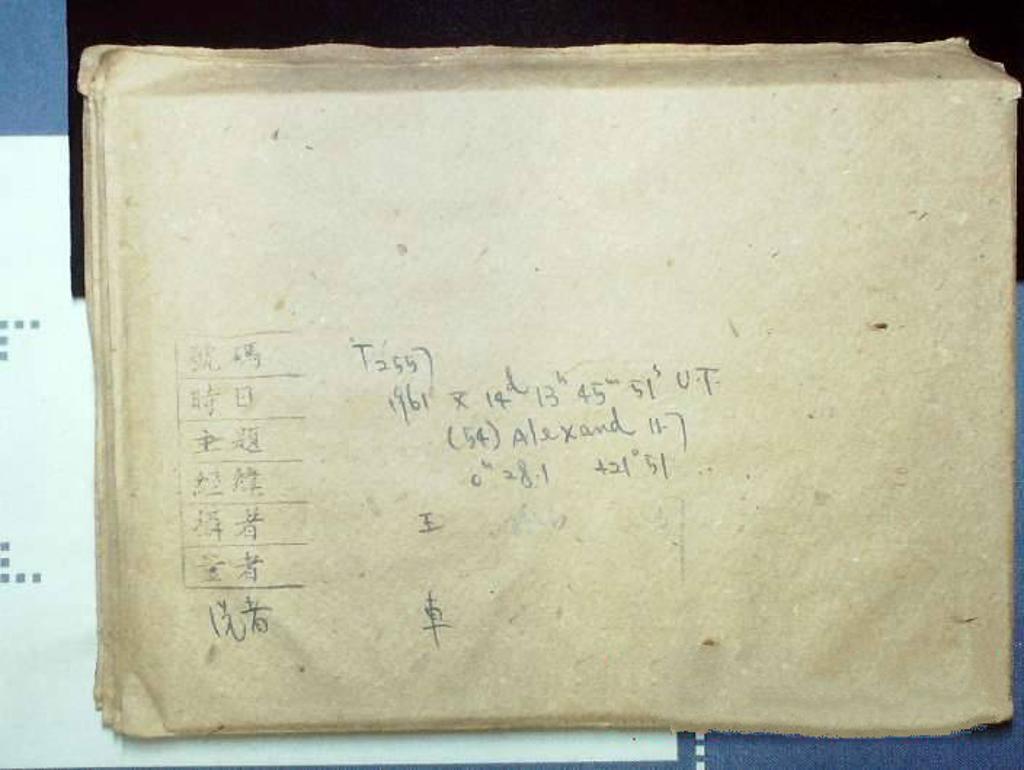 號碼 T2557
時日 1961 X 14d 13h 45m 51s U.T.
主題 (54) Alexand 11.7
經緯 0h 28.1 +21° 51
攝者 王
者
洗者 車